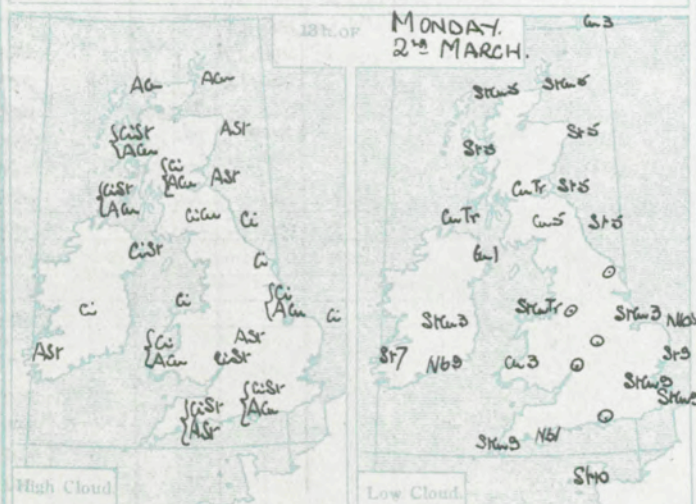 13h. OF
MONDAY.
2nd MARCH.
ACu
ACu
{CiSt
ACu
ASt
{Ci
ACu
ASt
{CiSt
ACu
CiCu
Ci
CiSt
Ci
Ci
{Ci
ACu
Ci
Ci
ASt
{Ci
ACu
ASt
CiSt
{CiSt
ACu
{CiSt
ASt
High Cloud
Cu3
StCu5
StCu5
St5
St5
CuTr
St5
CuTr
Cu5
St5
Cu1
StCuTr
StCu3
StCu3
St7
Nb9
Cu3
St9
StCu9
StCu9
StCu9
Nb1
St10
Low Cloud